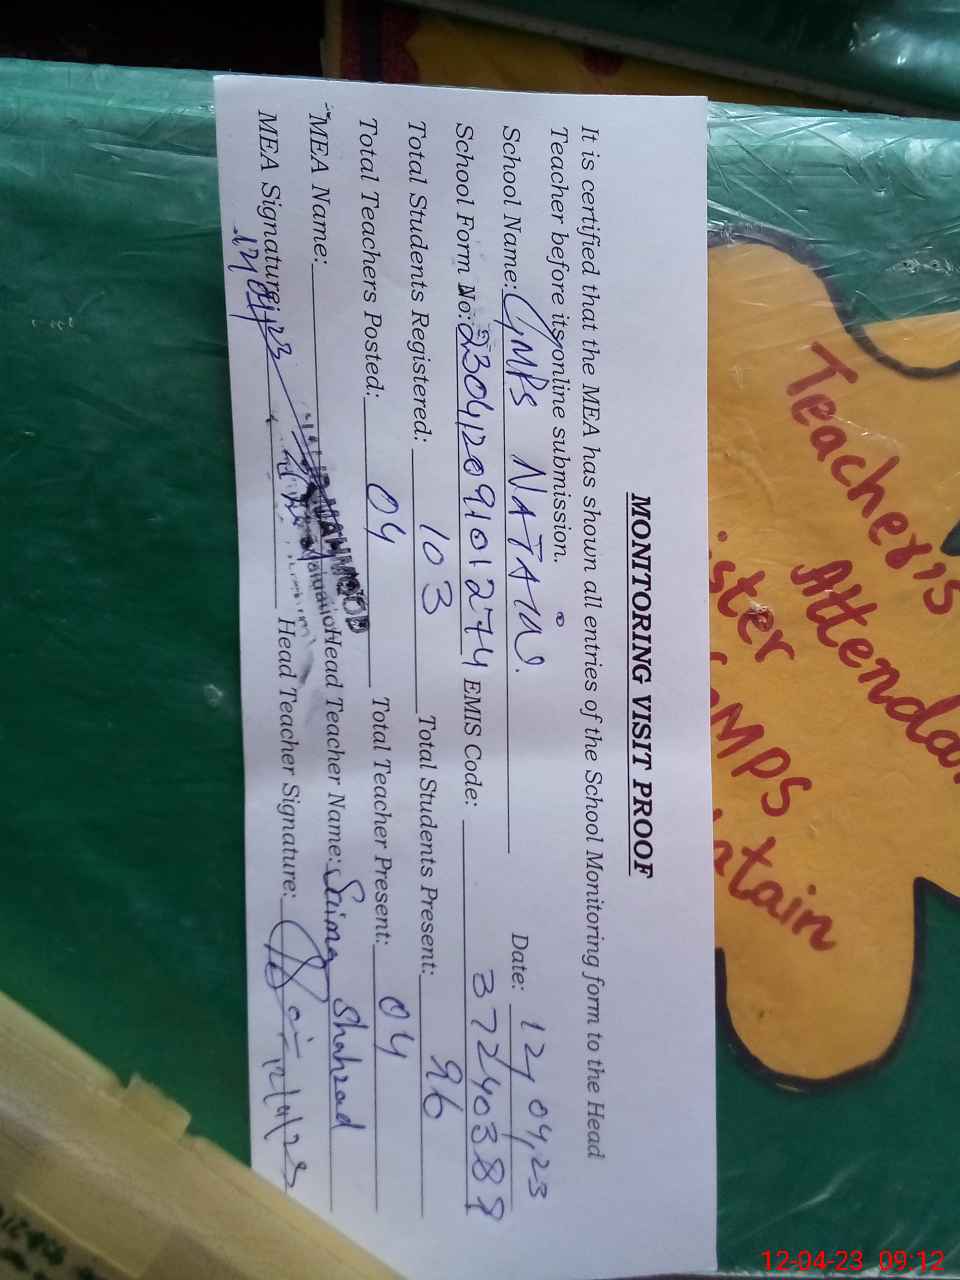 MONITORING VISIT PROOF
It is certified that the MEA has shown all entries of the School Monitoring form to the Head
Teacher before its online submission.
School Name: GMPS NATAIN. Date: 12,04,23
School Form No: 23041209101274 EMIS Code: 37240388
Total Students Registered: 103 Total Students Present: 96
Total Teachers Posted: 04 Total Teacher Present: 04
MEA Name: MAHMOOD Head Teacher Name: Saima Shahzad
MEA Signature: Head Teacher Signature:
12/04/23
Teacher's
Attenda
ister
GMPS
atain
12-04-23 09:12